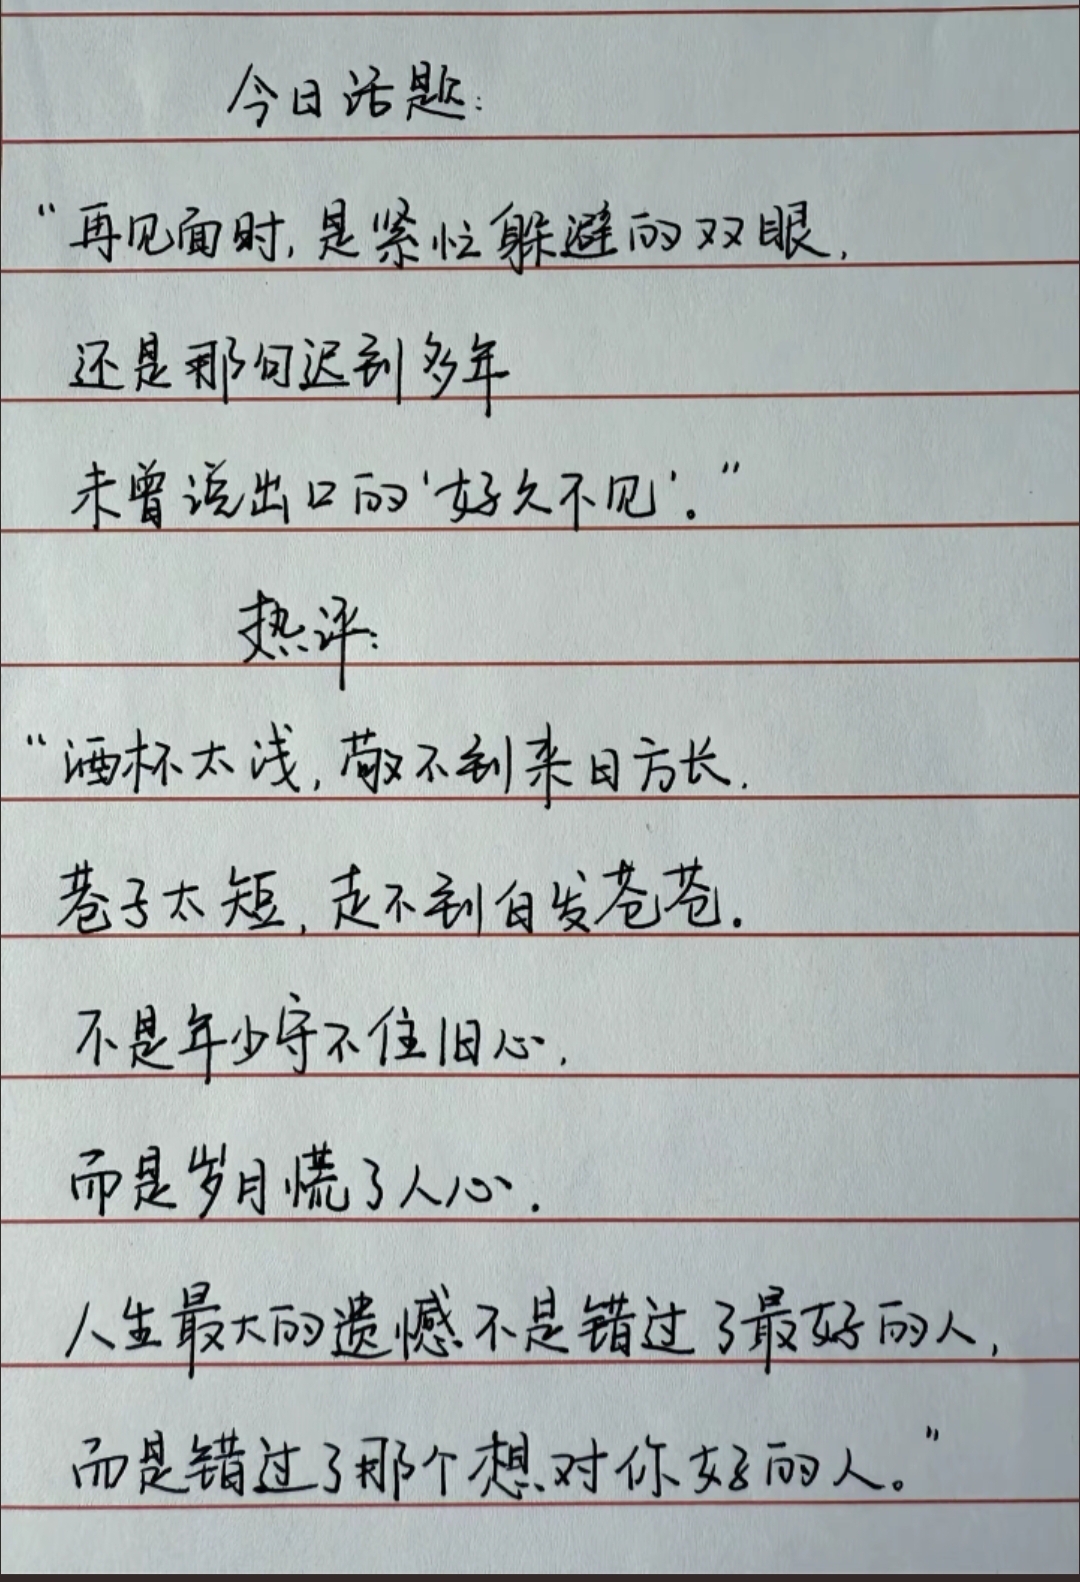 今日话题:
“再见面时,是紧忙躲避的双眼,
还是那句迟到多年
未曾说出口的‘好久不见’。”
热评:
“酒杯太浅,敬不到来日方长.
巷子太短,走不到白发苍苍.
不是年少守不住旧心,
而是岁月慌了人心.
人生最大的遗憾不是错过了最好的人,
而是错过了那个想对你好的人。”